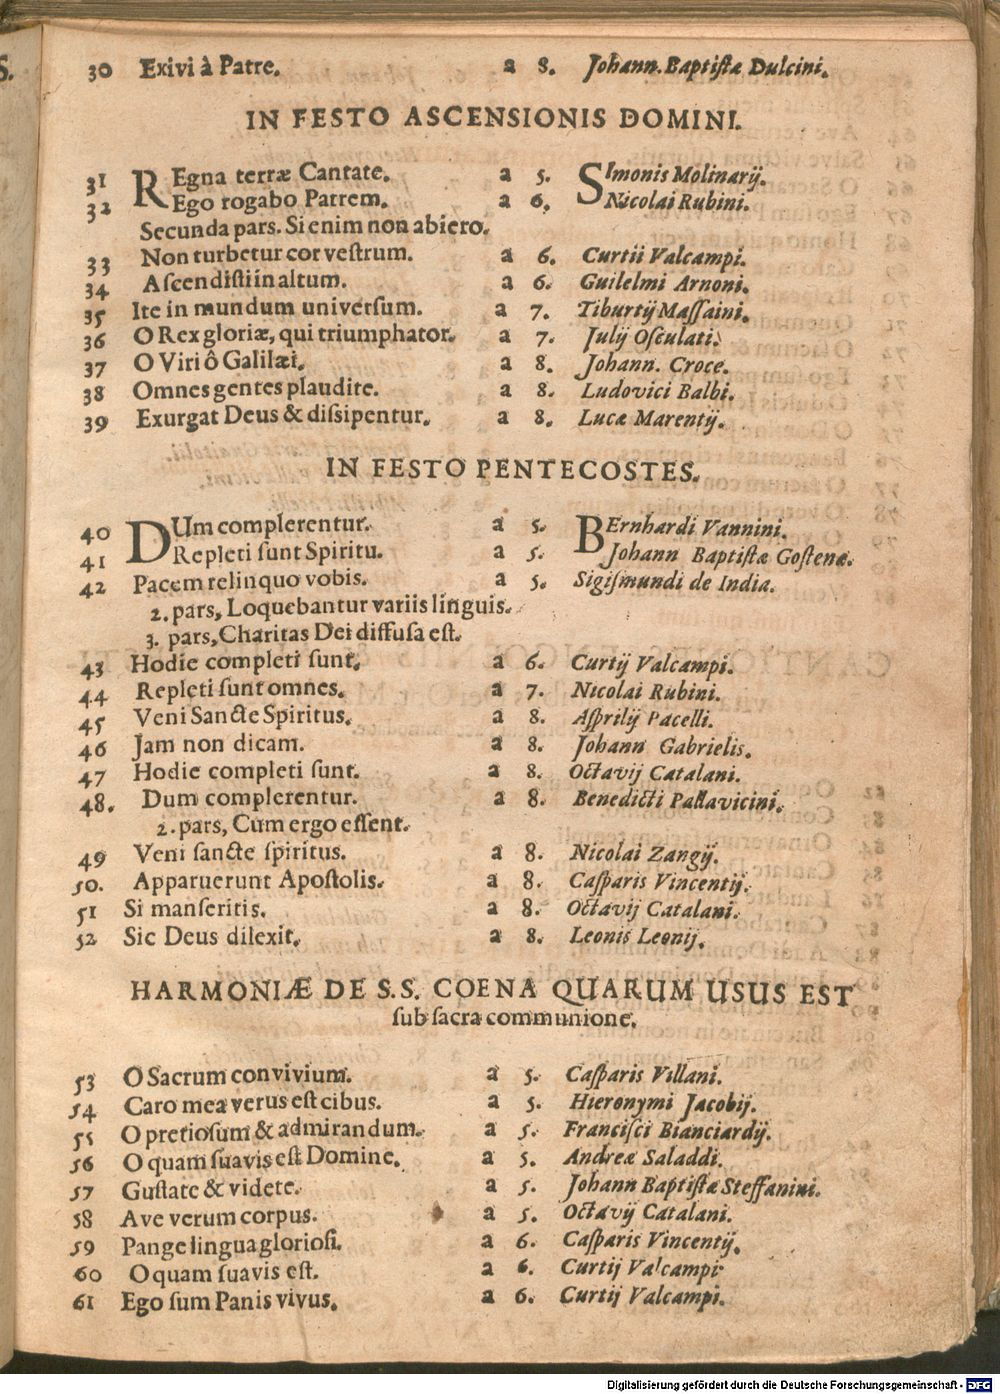 30 Exivi à Patre. a 8. Johann. Baptistæ Dulcini.
IN FESTO ASCENSIONIS DOMINI.
31 REgna terræ Cantate. a 5. SImonis Molinarij.
32 Ego rogabo Patrem. a 6. Nicolai Rubini.
Secunda pars. Si enim non abiero.
33 Non turbetur cor vestrum. a 6. Curtii Valcampi.
34 Ascendisti in altum. a 6. Guilelmi Arnoni.
35 Ite in mundum universum. a 7. Tiburtij Massaini.
36 O Rex gloriæ, qui triumphator. a 7. Julij Osculati.
37 O Viri ô Galilæi. a 8. Johann. Croce.
38 Omnes gentes plaudite. a 8. Ludovici Balbi.
39 Exurgat Deus & dissipentur. a 8. Lucæ Marentij.
IN FESTO PENTECOSTES.
40 DUm complerentur. a 5. BErnhardi Vannini.
41 Repleti sunt Spiritu. a 5. Johann Baptistæ Gostenæ.
42 Pacem relinquo vobis. a 5. Sigismundi de India.
2. pars, Loquebantur variis linguis.
3. pars, Charitas Dei diffusa est.
43 Hodie completi sunt. a 6. Curtij Valcampi.
44 Repleti sunt omnes. a 7. Nicolai Rubini.
45 Veni Sancte Spiritus. a 8. Asprilij Pacelli.
46 Jam non dicam. a 8. Johann Gabrielis.
47 Hodie completi sunt. a 8. Octavij Catalani.
48. Dum complerentur. a 8. Benedicti Pallavicini.
2. pars, Cum ergo essent.
49 Veni sancte spiritus. a 8. Nicolai Zangij.
50. Apparuerunt Apostolis. a 8. Casparis Vincentij.
51 Si manseritis. a 8. Octavij Catalani.
52 Sic Deus dilexit. a 8. Leonis Leonij.
HARMONIÆ DE S.S. COENA QUARUM USUS EST
sub sacra communione.
53 O Sacrum convivium. a 5. Casparis Villani.
54 Caro mea verus est cibus. a 5. Hieronymi Jacobij.
55 O pretiosum & admirandum. a 5. Francisci Bianciardij.
56 O quam suavis est Domine. a 5. Andreæ Saladdi.
57 Gustate & videte. a 5. Johann Baptistæ Steffanini.
58 Ave verum corpus. a 5. Octavij Catalani.
59 Pange lingua gloriosi. a 6. Casparis Vincentij.
60 O quam suavis est. a 6. Curtij Valcampi
61 Ego sum Panis vivus. a 6. Curtij Valcampi.
Digitalisierung gefördert durch die Deutsche Forschungsgemeinschaft - DFG